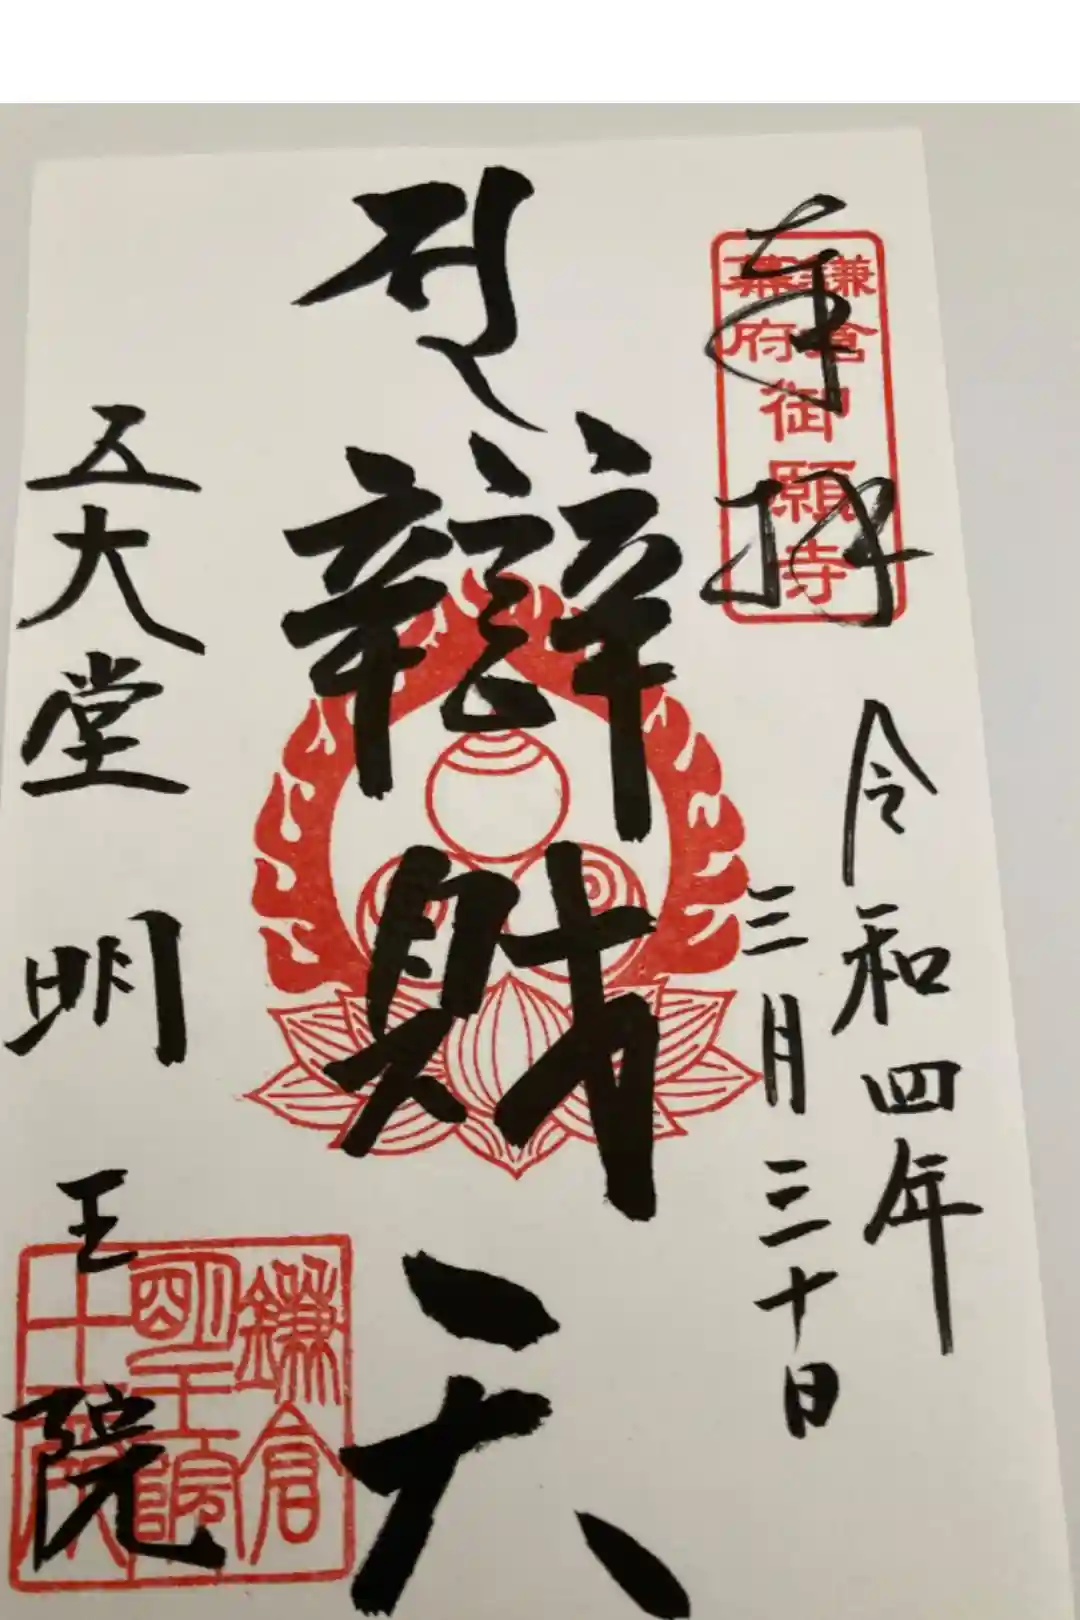 奉拝
鎌倉
幕府
御願寺
令和四年
三月三十日
辯財天
五大堂 明王院
鎌倉
明王院